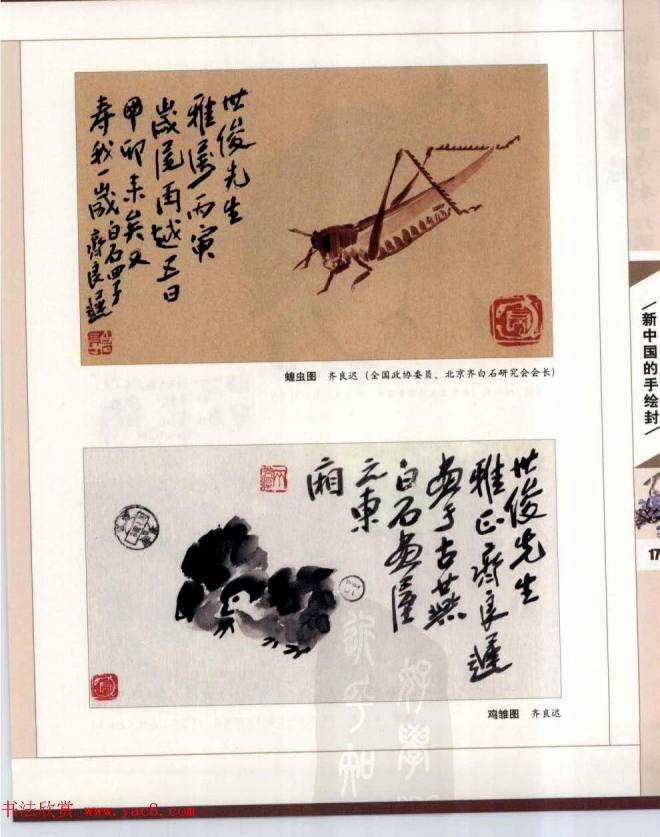 世俊先生
雅属丙寅
歲尾再越五日
甲卯来矣又
寿我一歲白石四子
齊良遲
蝗虫图 齐良迟（全国政协委员、北京齐白石研究会会长）
世俊先生
雅正齊良遲
画于古燕
白石画屋
之東
廂
鸡雏图 齐良迟
新中国的手绘封
17
书法欣赏 www.yac8.com